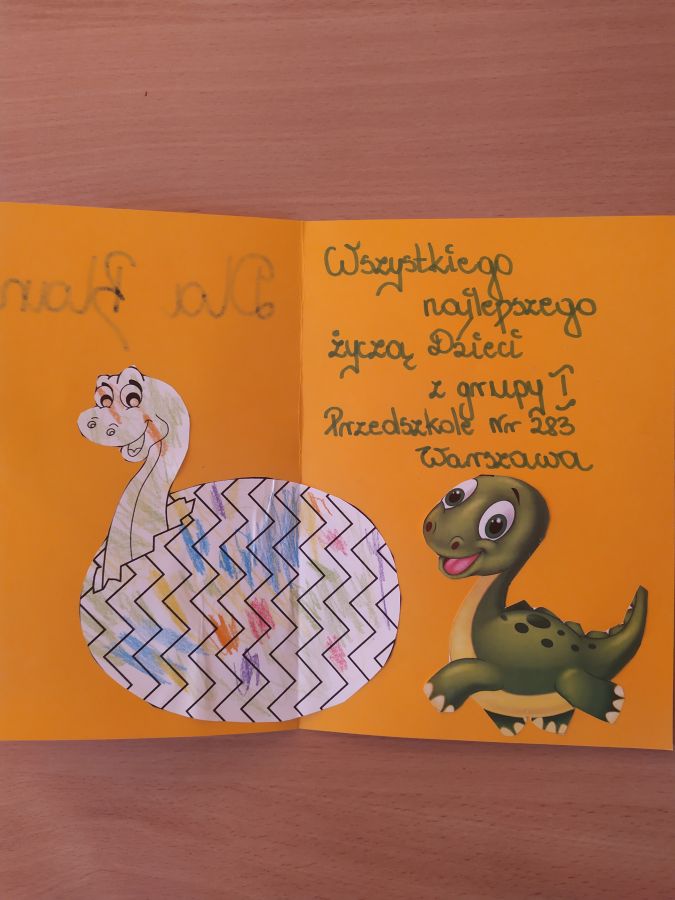 Dla Han
Wszystkiego
najlepszego
życzą Dzieci
z grupy I
Przedszkole Nr 283
Warszawa